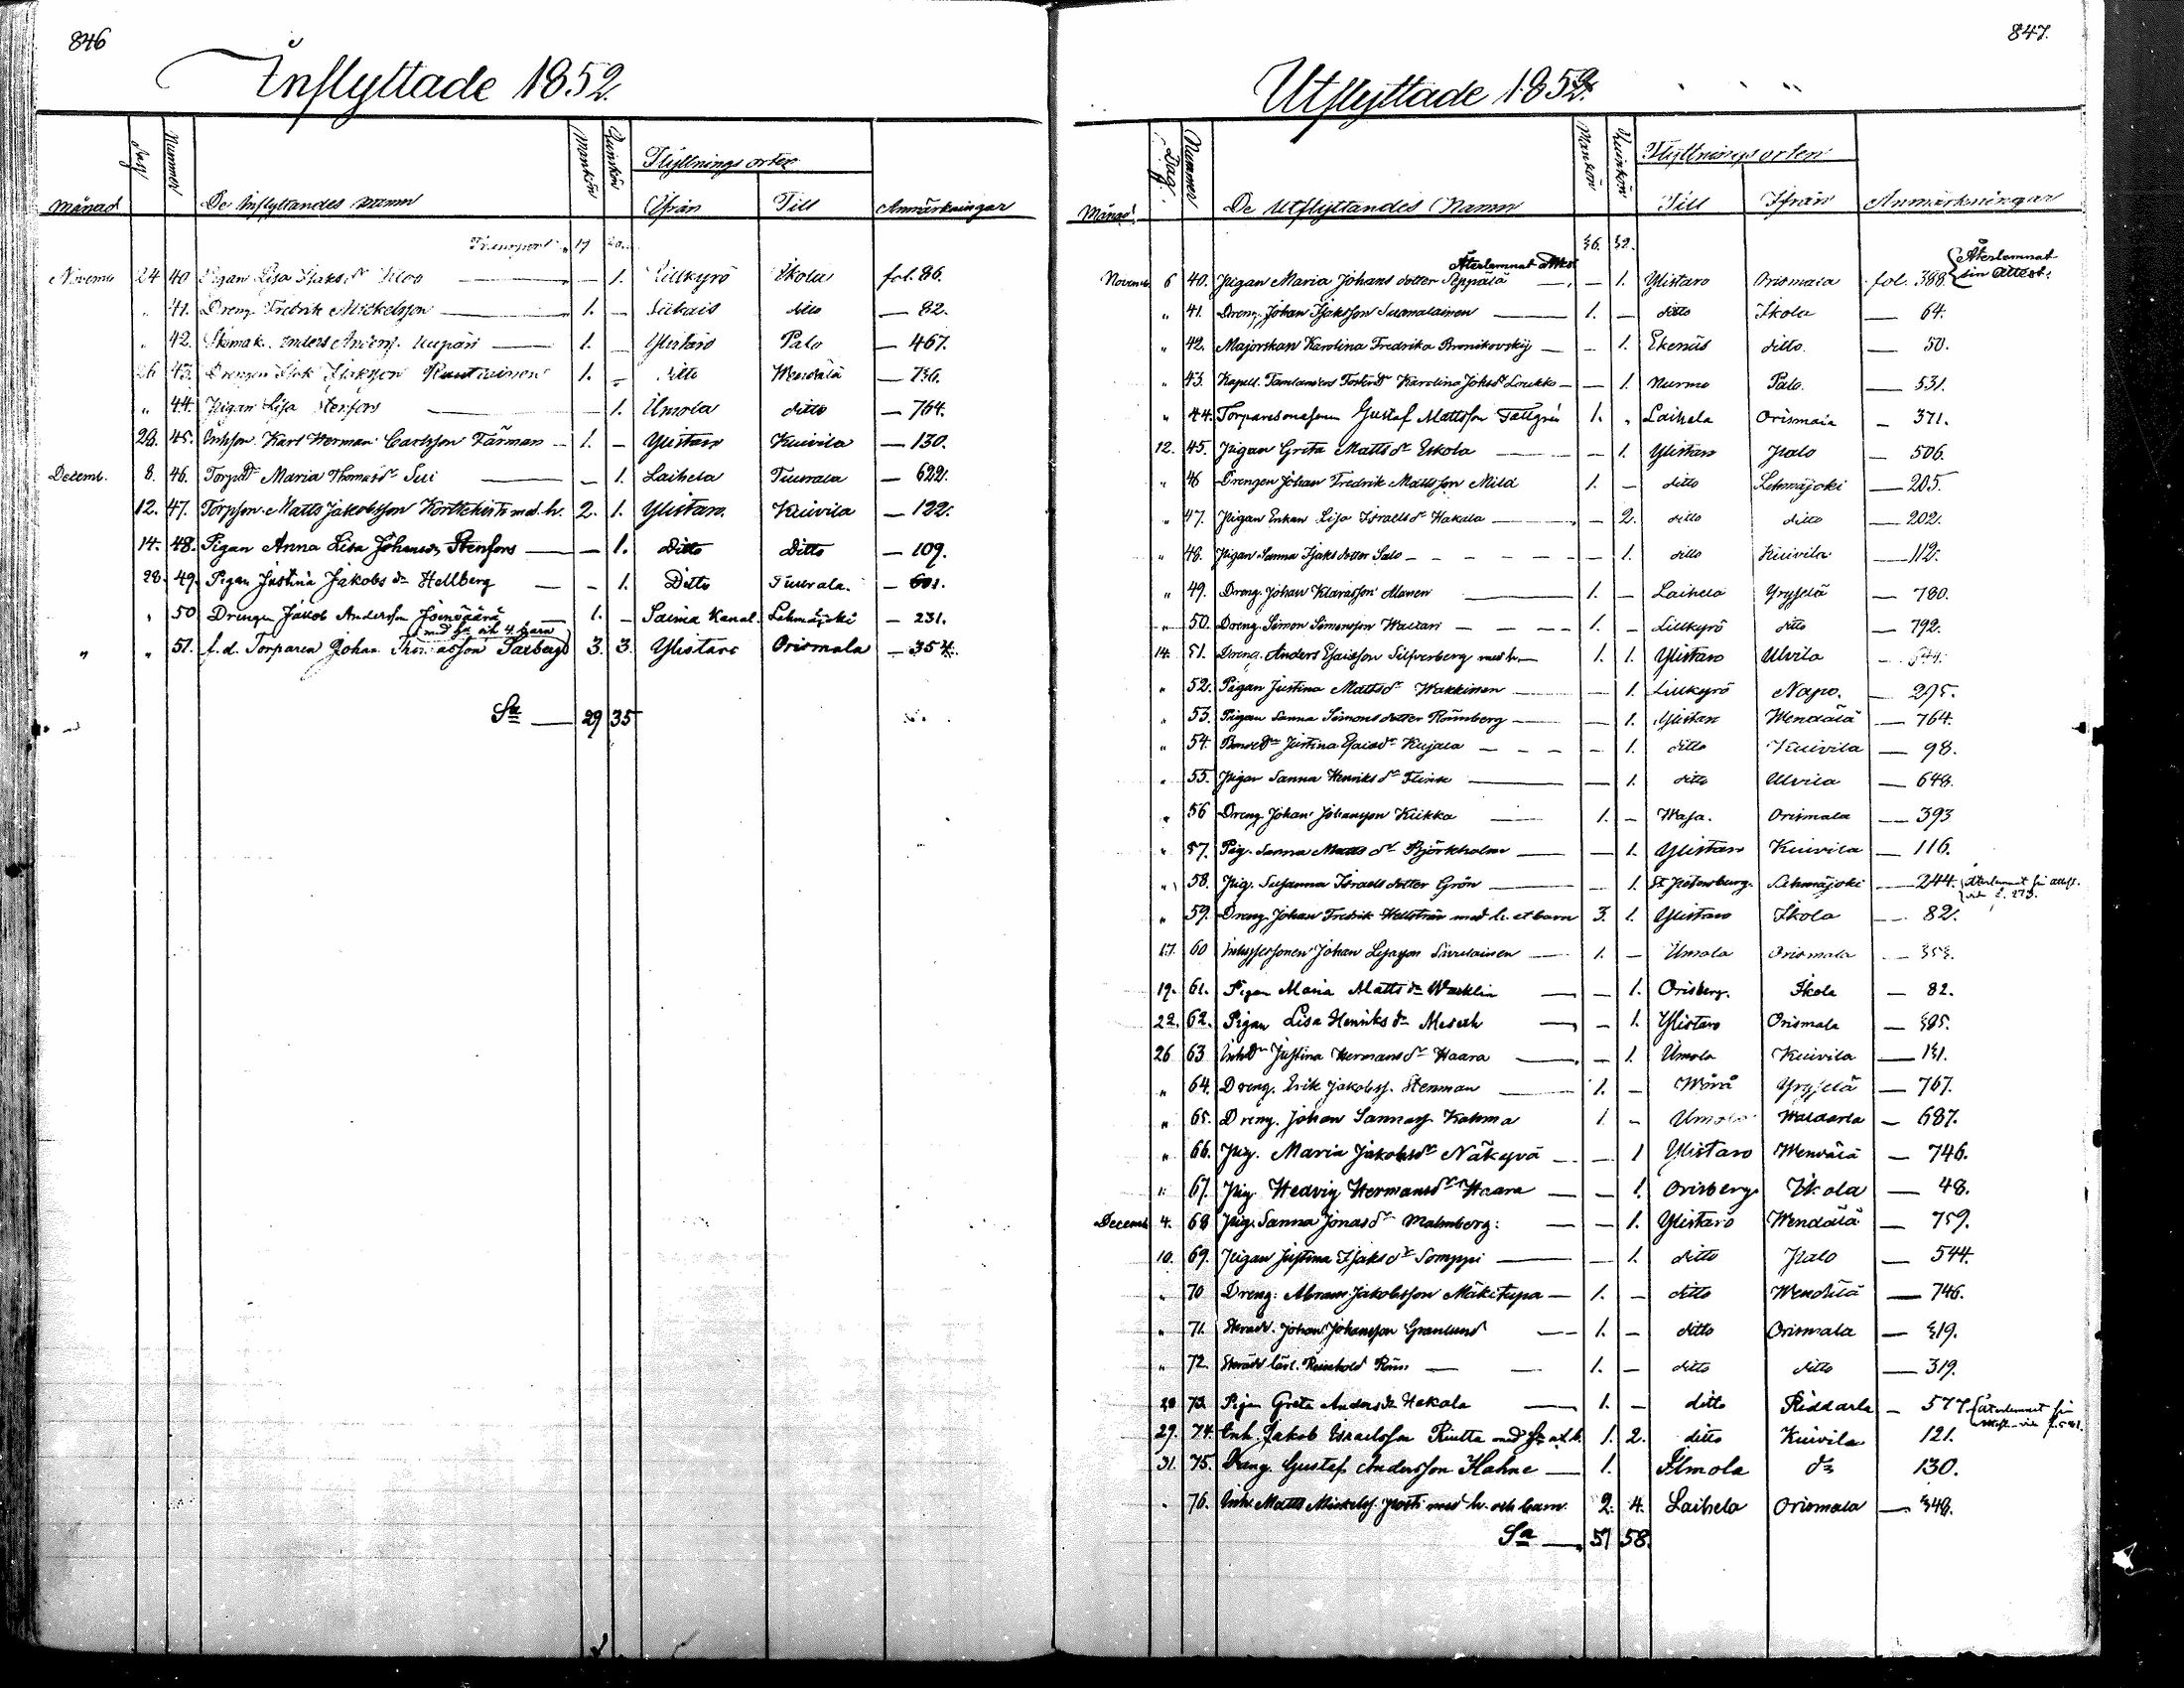 846
Inflyttade 1852.
Månad Dag Nummer De Inflyttandes namn Mankön Qvinkön Flyttnings orten Ifrån Till Anmärkningar
Transport 19 20
Novemb. 24 40 Pigan Lisa Isaks dr — 1. Lillkyrö Ikola fol. 86.
" 41. Dreng. Fredrik Mickelsson 1. — ditto — 82.
" 42. Anders 1. — Ylistaro Palo — 467.
26 43. Drengen Isak Isaksson Rautiainen 1. — ditto Wendälä — 736.
" 44. Pigan Lisa Stenfors — 1. Ilmola ditto — 764.
28. 45. Inhson. Karl Herman Carlsson Färman 1. — Ylistaro Kuivila — 130.
Decemb. 8. 46. Torpdr Maria Thomasdr Sui — 1. Laihela Tuurala — 622.
12. 47. Torpson. Matts Jakobsson Korttehisto med h. 2. 1. Ylistaro. Kuivila — 122.
14. 48. Pigan Anna Lisa Johansdr Stenfors — 1. Ditto Ditto — 109.
28. 49. Pigan Justina Jakobs dr Hellberg — 1. Ditto Tuurala. — 601.
" 50 Drengen Jakob Andersson Joenväärä 1. — Saima Kanal. Lehmäjoki — 231.
med h. och 4 barn
" " 51. f.d. Torparen Johan Thomasson Taxberg 3. 3. Ylistaro Orismala — 354.
Sa — 29 35
847.
Utflyttade 1852.
Månad Dag Nummer De Utflyttandes Namn Mankön Qvinkön Flyttningsorten Till Ifrån Anmärkningar
36. 32.
Återlemnat Attest
Novemb. 6 40. Pigan Maria Johans dotter Seppälä — 1. Ylistaro Orismala fol. 388. Återlemnat sin Attest.
" 41. Dreng. Johan Isaksson Suomalainen 1. — ditto Ikola — 64.
" 42. Majorskan Karolina Fredrika Bronikovskij — 1. Ekenäs ditto. — 50.
" 43. Kapell. Karolina Johsdr Loukko — 1. Nurmo Palo. — 531.
" 44. Torparesonasonen Gustaf Mattsson Tallgrén 1. " Laihela Orismala — 371.
12. 45. Pigan Greta Matts dr Eskola — 1. Ylistaro Palo — 506.
" 46 Drengen Johan Fredrik Mattsson Mild 1. — ditto Lehmäjoki — 205.
" 47. Pigan Enkan Lisa Israelsdr Hakala — 2. ditto ditto — 202.
" 48. Pigan Sanna Isaks dotter Salo — 1. ditto Kuivila — 112.
" 49. Dreng. Johan Klarasson Alanen 1. — Laihela Yryselä — 780.
" 50. Dreng. Simon Simonsson Waltari 1. — Lillkyrö ditto — 792.
14. 51. Dreng. Anders Esaisson Silfverberg med h. 1. 1. Ylistaro Ulvila — 644.
" 52. Pigan Justina Mattsdr Wakkinen — 1. Lillkyrö Napo. — 295.
" 53. Pigan Sanna Simons dotter Rönnberg — 1. Ylistaro Wendälä — 764.
" 54. Bondedr Justina Esaiedr Kujala — 1. ditto Kuivila — 98.
" 55. Pigan Sanna Henriks dr Flink — 1. ditto Ulvila — 648.
" 56 Dreng. Johan Johansson Kiikka 1. — Wasa. Orismala — 393
" 57. Pig. Sanna Matts dr Björkholm — 1. Ylistaro Kuivila — 116.
" 58. Pig. Susanna Israels dotter Grön — 1. St. Petersburg. Lehmäjoki — 244. Återlemnat sin attest. vide f. 273.
" 59. Dreng. Johan Fredrik Hellström med h. et barn 3. 1. Ylistaro Ikola — 82.
17. 60 Inhysessonen Johan Sivulainen 1. — Ilmola Orismala — 353.
19. 61. Pigan Maria Matts dr Wacklin — 1. Orisberg. Ikola — 82.
22. 62. Pigan Lisa Henriks dr — 1. Ylistaro Orismala — 395.
26 63 Inhdr Justina Hermansdr Haara — 1. Ilmola Kuivila — 131.
" 64. Dreng. Erik Jakobss. Stenman 1. — Wörå Yryselä — 767.
" 65. Dreng. Johan Sannass. Kahma 1. — Ilmola Waldarla — 687.
" 66. Pig. Maria Jakobsdr Näkyvä — 1 Ylistaro Wendälä — 746.
" 67. Pig. Hedvig Hermansdr Haara — 1. Orisberg Ikola — 48.
Decemb. 4. 68 Pig. Sanna Jonasdr Malmberg. — 1. Ylistaro Wendälä — 759.
10. 69. Pigan Justina Isaks dr Somppi — 1. ditto Palo — 544.
" 70 Dreng. Abram Jakobsson Mäkitupa 1. — ditto Wendälä — 746.
" 71. Skradd. Johan Johansson Granlund 1. — ditto Orismala — 319.
" 72. Skradd. lärl. Reinhold 1. — ditto ditto — 319.
28 73 Pigan Greta Anders dr Hakala 1. — ditto Riddarla — 577. Återlemnat sin attest vide f. 581.
29. 74. Inh. Jakob Israelsson Rintta med h. 1. 2. ditto Kuivila 121.
31. 75. Dreng. Gustaf Andersson Hahne 1. Ilmola do 130.
" 76. Inh. Matts Mickelss. Posti med h. och barn. 2. 4. Laihela Orismala — 348.
Sa — 51 58.